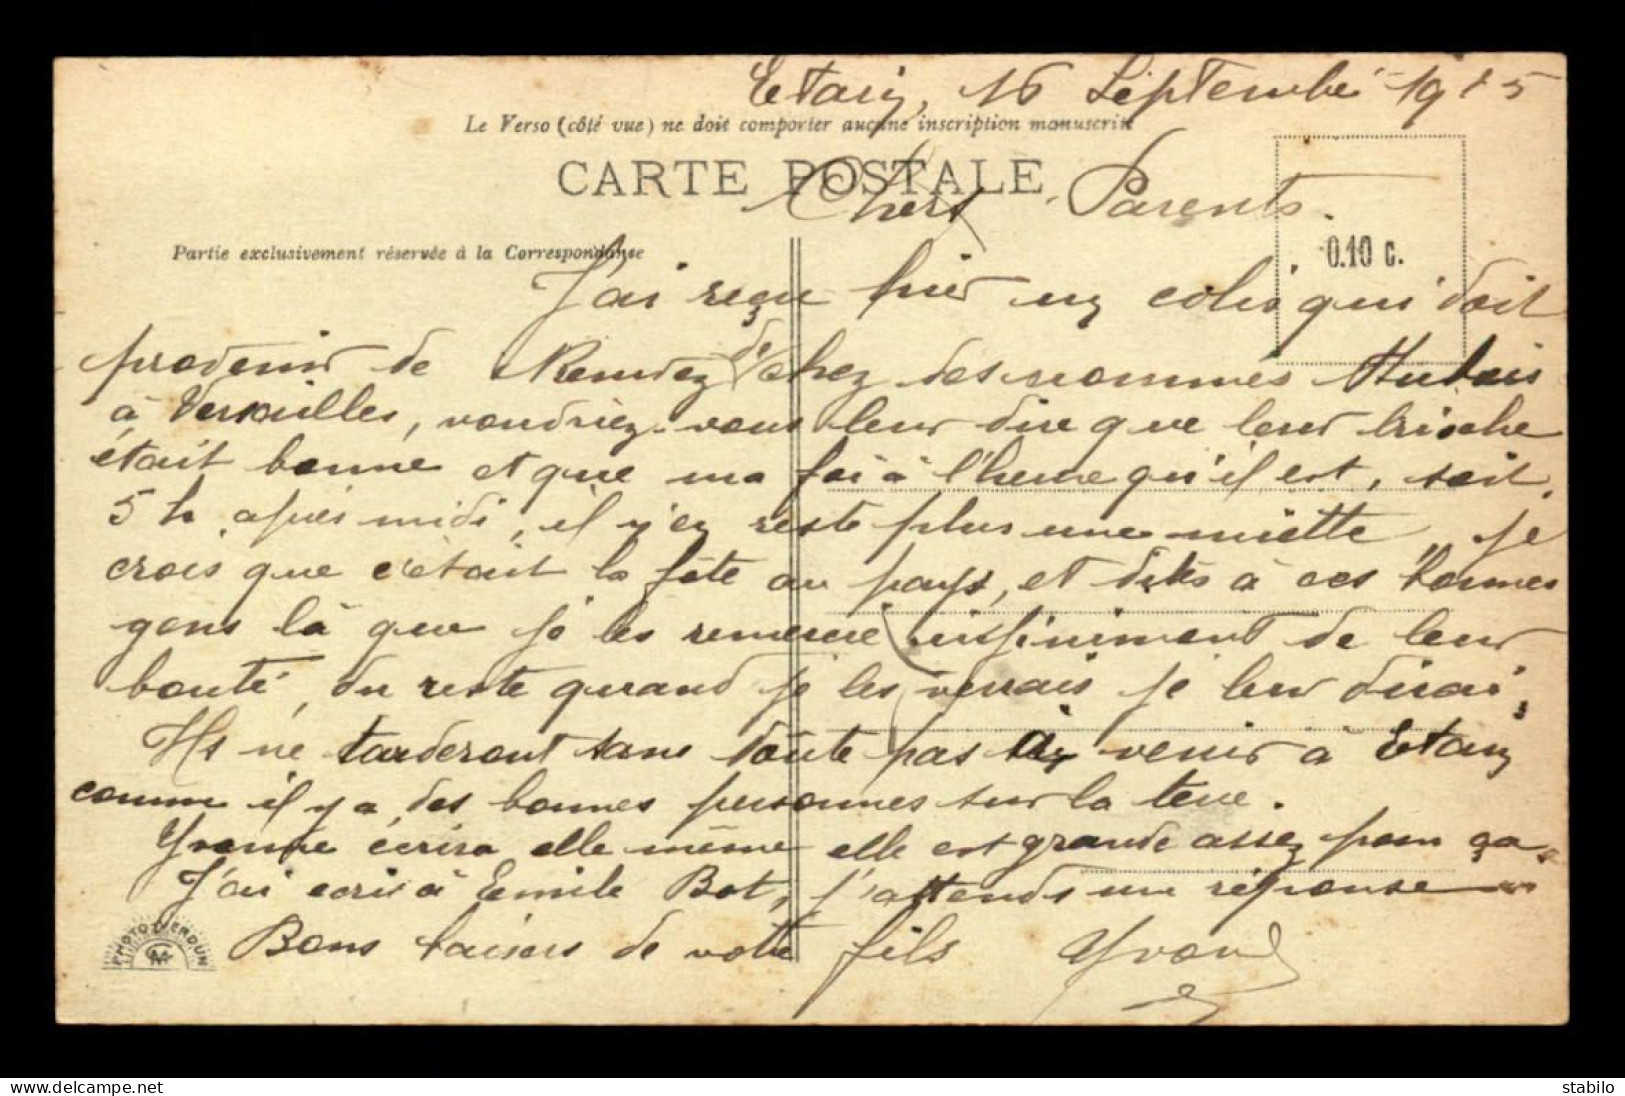 Etain, 16 Septembre 1915
Le Verso (côté vue) ne doit comporter aucune inscription manuscrite
CARTE POSTALE
Chers Parents.
Partie exclusivement réservée à la Correspondance
0.10 c.
J'ai reçu hier un colis qui doit
provenir de de chez des nommés
à Versailles, voudriez-vous leur dire que leur brioche
était bonne et que ma foi à l'heure qu'il est, soit
5 h après midi, il n'en reste plus une miette, je
crois que c'était la fête au pays, et dites à ces bonnes
gens là que je les remercie infiniment de leur
bonté, du reste quand je les verrais je leur dirai,
Ils ne tarderont sans doute pas à venir à Etain
comme il y a des bonnes personnes sur la terre.
Yvonne écrira elle même elle est grande assez pour ça.
J'ai écris à Emile Bot, j'attends une réponse
Bons baisers de votre fils Yvon
PHOTO VERDUN
CM
delcampe.net
stabilo